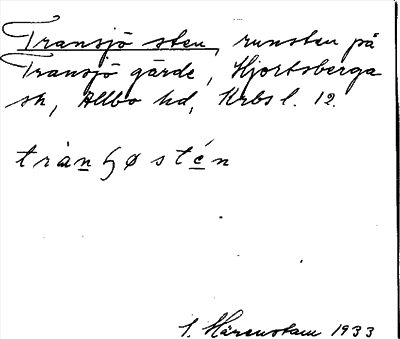 Transjö sten, runsten på
Transjö gärde, Hjortsberga
sn, Allbo hd, Krbs l. 12.
trànʃøstén
S. Härenstam 1933